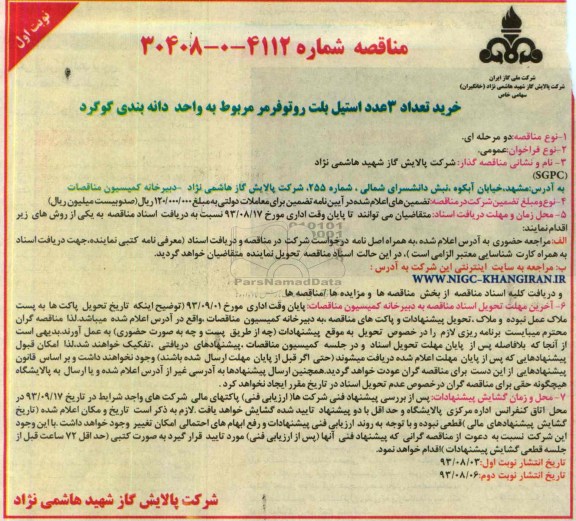 نوبت اول
شرکت ملی گاز ایران
شرکت پالایش گاز شهید هاشمی نژاد (خانگیران)
سهامی خاص
مناقصه شماره ۴۱۱۲-۰-۳۰۴۰۸
خرید تعداد ۳عدد استیل بلت روتوفرمر مربوط به واحد دانه بندی گوگرد
۱-نوع مناقصه:دو مرحله ای.
۲-نوع فراخوان:عمومی.
۳- نام و نشانی مناقصه گذار: شرکت پالایش گاز شهید هاشمی نژاد
(SGPC)
به آدرس:مشهد،خیابان آبکوه ،نبش دانشسرای شمالی ، شماره ۲۵۵، شرکت پالایش گاز هاشمی نژاد -دبیرخانه کمیسیون مناقصات
۴-نوع ومبلغ تضمین شرکت در مناقصه:تضمین های اعلام شده در آیین نامه تضمین برای معاملات دولتی به مبلغ ۱۲۰/۰۰۰/۰۰۰ریال(صدوبیست میلیون ریال)
۵-محل زمان و مهلت دریافت اسناد: متقاضیان می توانند تا پایان وقت اداری مورخ ۹۳/۰۸/۱۷ نسبت به دریافت اسناد مناقصه به یکی از روش های زیر
اقدام نمایند:
الف:مراجعه حضوری به آدرس اعلام شده ،به همراه اصل نامه درخواست شرکت در مناقصه و دریافت اسناد (معرفی نامه کتبی نماینده،جهت دریافت اسناد
به همراه کارت شناسایی معتبر الزامی است )، در این حالت اسناد مناقصه تحویل نماینده متقاضیان خواهد گردید.
ب: مراجعه به سایت اینترنتی این شرکت به آدرس :
WWW.NIGC-KHANGIRAN.IR
و دریافت کلیه اسناد مناقصه از بخش مناقصه ها و مزایده ها /مناقصه ها
۶- آخرین مهلت تحویل اسناد مناقصه به دبیرخانه کمیسیون مناقصات: پایان وقت اداری مورخ ۹۳/۰۹/۰۱ (توضیح اینکه تاریخ تحویل پاکت ها به پست
ملاک عمل نبوده و ملاک ،تحویل پیشنهادات و پاکت های مناقصه ،به دبیرخانه کمیسیون مناقصات ،واقع در آدرس اعلام شده میباشد.لذا مناقصه گران
محترم میبایست برنامه ریزی لازم را در خصوص تحویل به موقع پیشنهادات (چه از طریق پست و چه به صورت حضوری) به عمل آورند.بدیهی است
از آنجا که بلافاصله پس از پایان مهلت تحویل اسناد و در جلسه کمیسیون مناقصات ،پیشنهادهای دریافتی ،تفکیک خواهند شد،لذا امکان قبول
پیشنهادهایی که پس از پایان مهلت اعلام شده دریافت میشوند (حتی اگر قبل از پایان مهلت ارسال شده باشند) وجود نخواهند داشت و بر اساس قانون
پیشنهادهایی از این دست برای مناقصه گران عودت خواهد گردید.همچنین ارسال پیشنهادها به آدرسی غیر از آدرس اعلام شده و یا ارسال به پالایشگاه
هیچگونه حقی برای مناقصه گران درخصوص عدم تحویل اسناد در تاریخ مقرر ایجاد نخواهد کرد.
۷-محل و زمان گشایش پیشنهادات: پس از بررسی پیشنهاد فنی شرکت ها (ارزیابی فنی) پاکتهای مالی شرکت های واجد شرایط در تاریخ ۹۳/۰۹/۱۷ در
محل اتاق کنفرانس اداره مرکزی پالایشگاه و حداقل با دو پیشنهاد تایید شده گشایش خواهد یافت .لازم به ذکر است تاریخ و مکان اعلام شده (تاریخ
گشایش پیشنهادهای مالی )قطعی نبوده و با توجه به روند ارزیابی فنی پیشنهادات و رفع ابهام های احتمالی امکان تغییر وجود خواهد داشت .با این وجود
این شرکت نسبت به دعوت از مناقصه گرانی که پیشنهاد فنی آنها (پس از ارزیابی فنی) مورد تایید قرار گیرد به صورت کتبی (حداقل ۷۲ ساعت قبل از
جلسه قطعی گشایش پیشنهادات )اقدام خواهد نمود.
تاریخ انتشار نوبت اول:۹۳/۰۸/۰۳
تاریخ انتشار نوبت دوم:۹۳/۰۸/۰۶
شرکت پالایش گاز شهید هاشمی نژاد
ParsNamadData